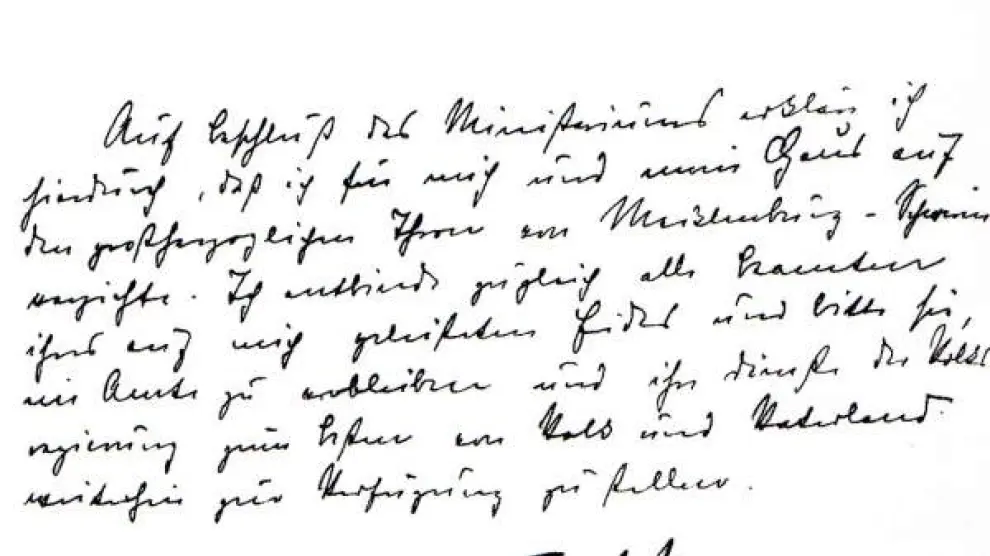 Auf beschluß des Ministeriums erkläre ich
hierdurch, daß ich für mich und mein Haus auf
den großherzoglichen Thron von Mecklenburg-Schwerin
verzichte. Ich entbinde zugleich alle beamten
ihres auf mich geleisteten Eides und bitte sie,
im Amte zu verbleiben und ihre dienste der Volks
regierung zum besten von Volk und Vaterland
weiterhin zur Verfügung zu stellen.